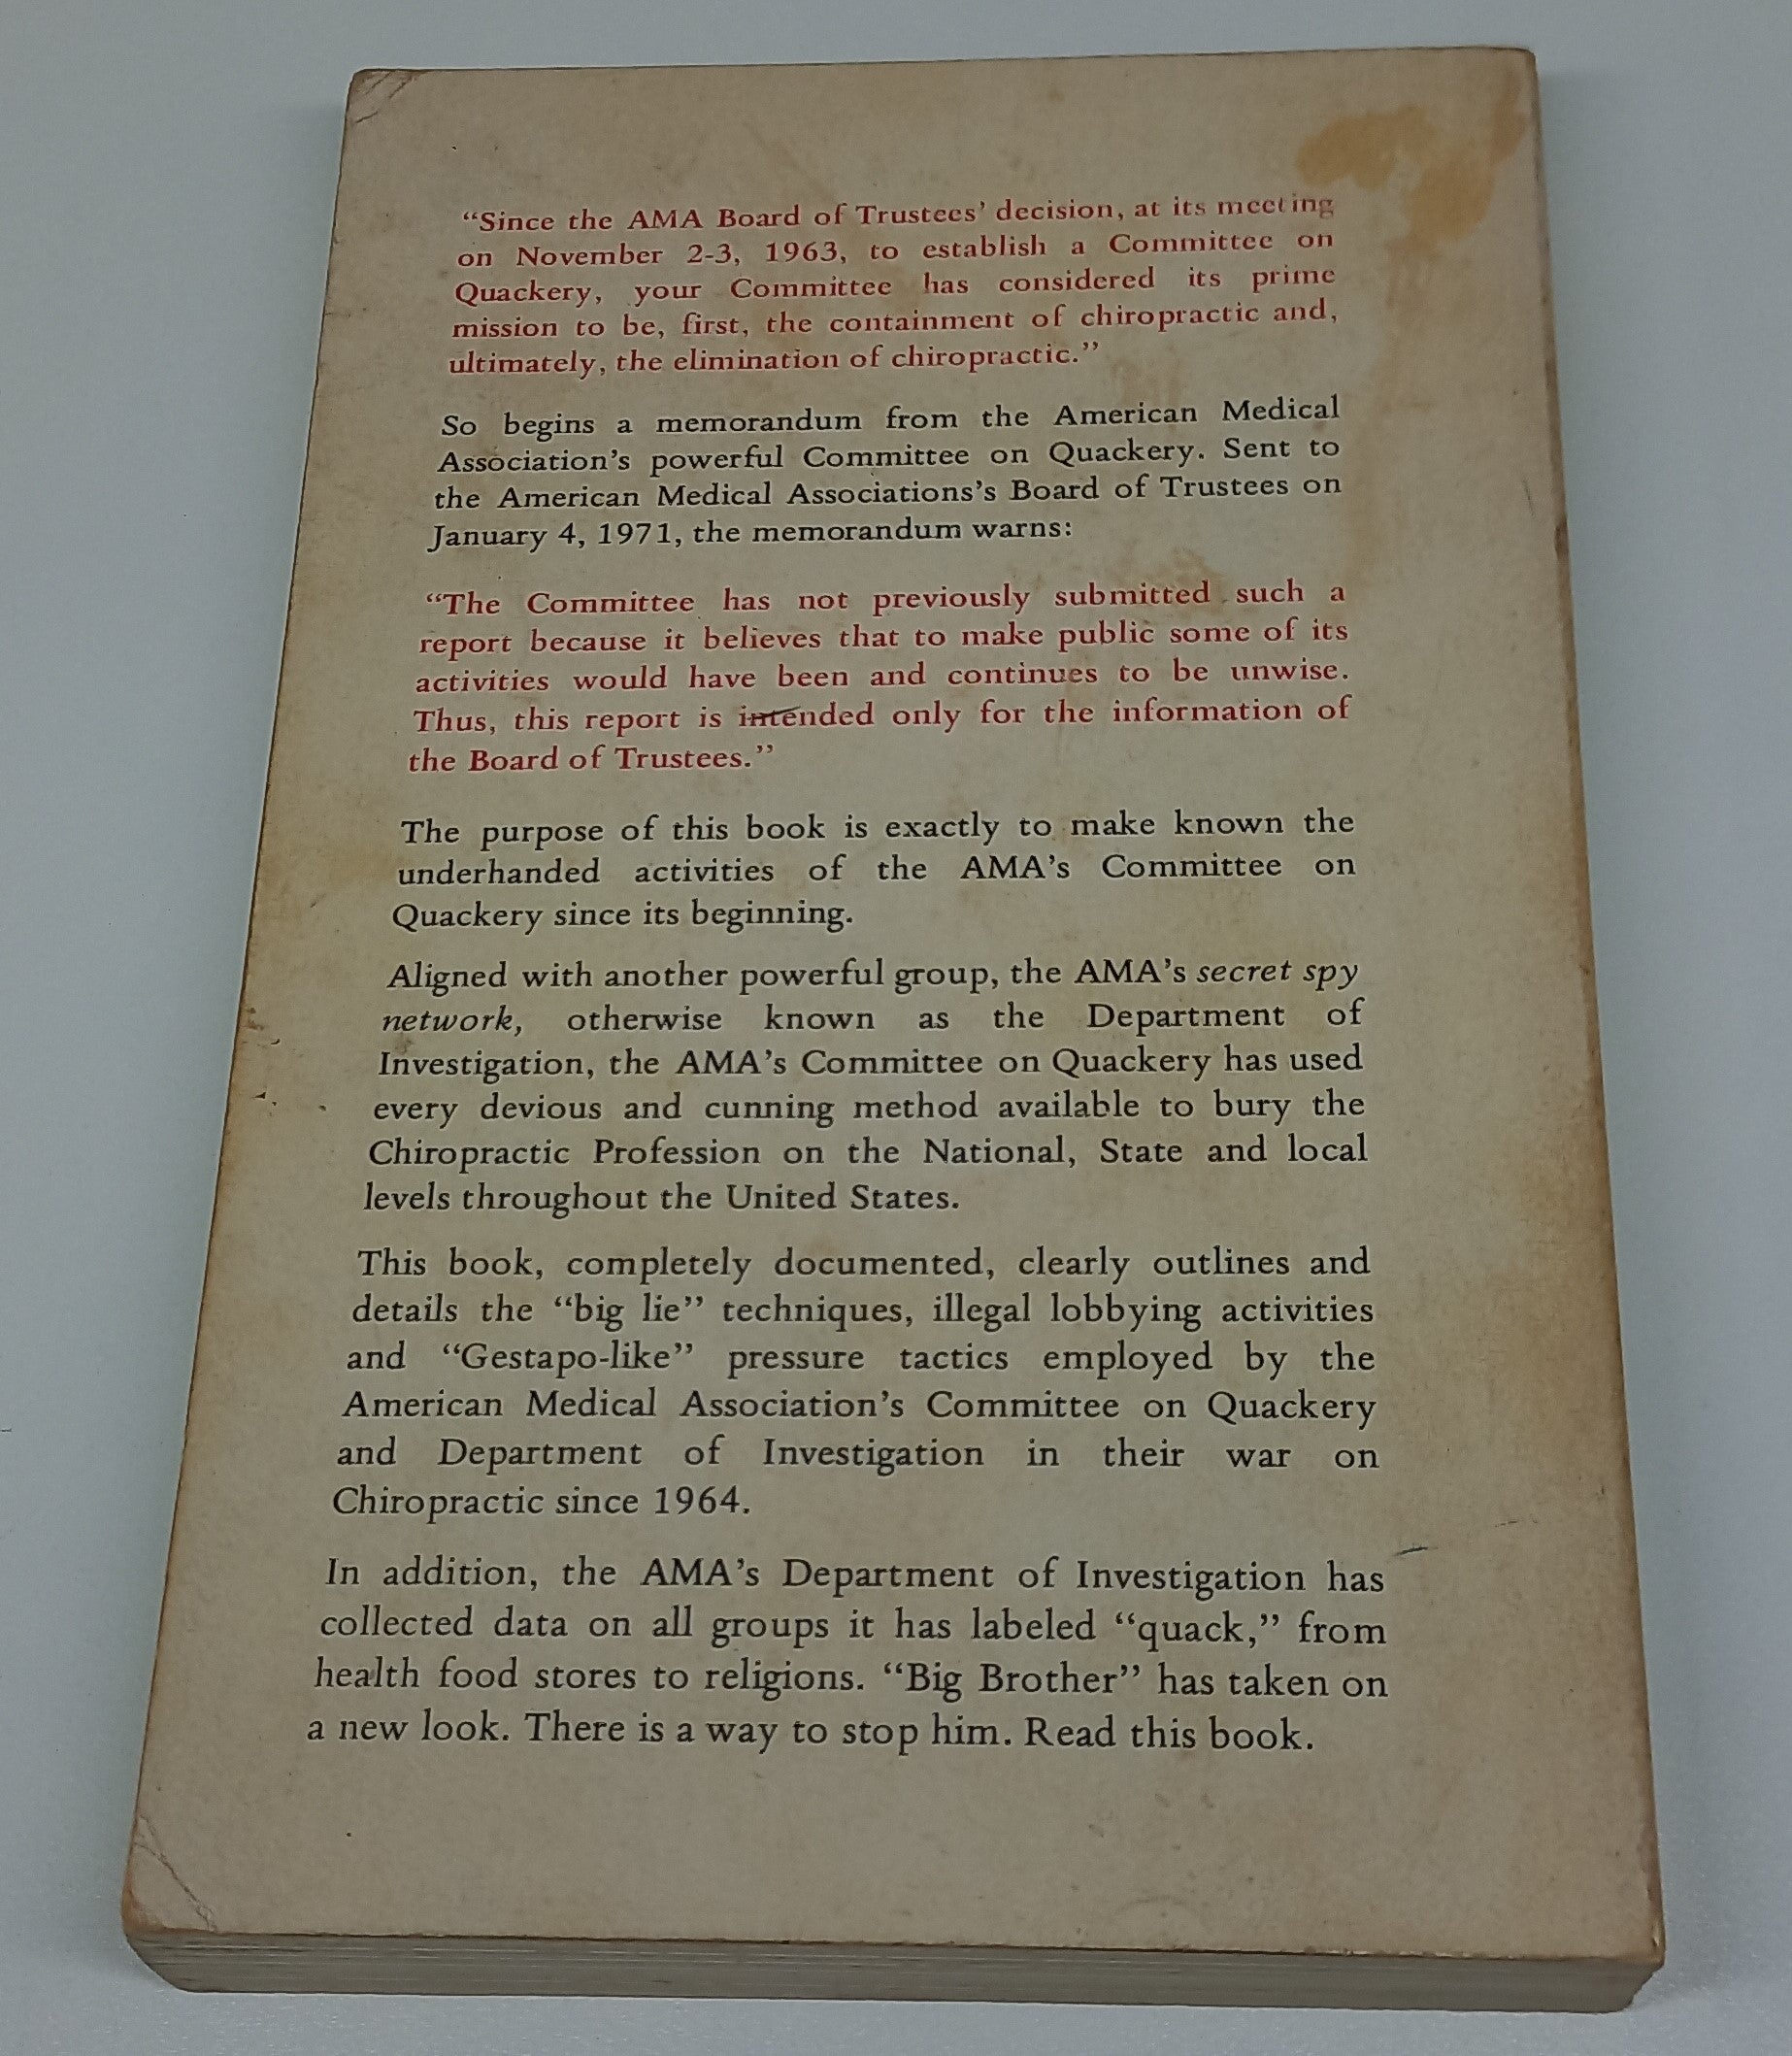 “Since the AMA Board of Trustees’ decision, at its meeting
on November 2-3, 1963, to establish a Committee on
Quackery, your Committee has considered its prime
mission to be, first, the containment of chiropractic and,
ultimately, the elimination of chiropractic.”
So begins a memorandum from the American Medical
Association’s powerful Committee on Quackery. Sent to
the American Medical Associations’s Board of Trustees on
January 4, 1971, the memorandum warns:
“The Committee has not previously submitted such a
report because it believes that to make public some of its
activities would have been and continues to be unwise.
Thus, this report is intended only for the information of
the Board of Trustees.”
The purpose of this book is exactly to make known the
underhanded activities of the AMA’s Committee on
Quackery since its beginning.
Aligned with another powerful group, the AMA’s secret spy
network, otherwise known as the Department of
Investigation, the AMA’s Committee on Quackery has used
every devious and cunning method available to bury the
Chiropractic Profession on the National, State and local
levels throughout the United States.
This book, completely documented, clearly outlines and
details the “big lie” techniques, illegal lobbying activities
and “Gestapo-like” pressure tactics employed by the
American Medical Association’s Committee on Quackery
and Department of Investigation in their war on
Chiropractic since 1964.
In addition, the AMA’s Department of Investigation has
collected data on all groups it has labeled “quack,” from
health food stores to religions. “Big Brother” has taken on
a new look. There is a way to stop him. Read this book.